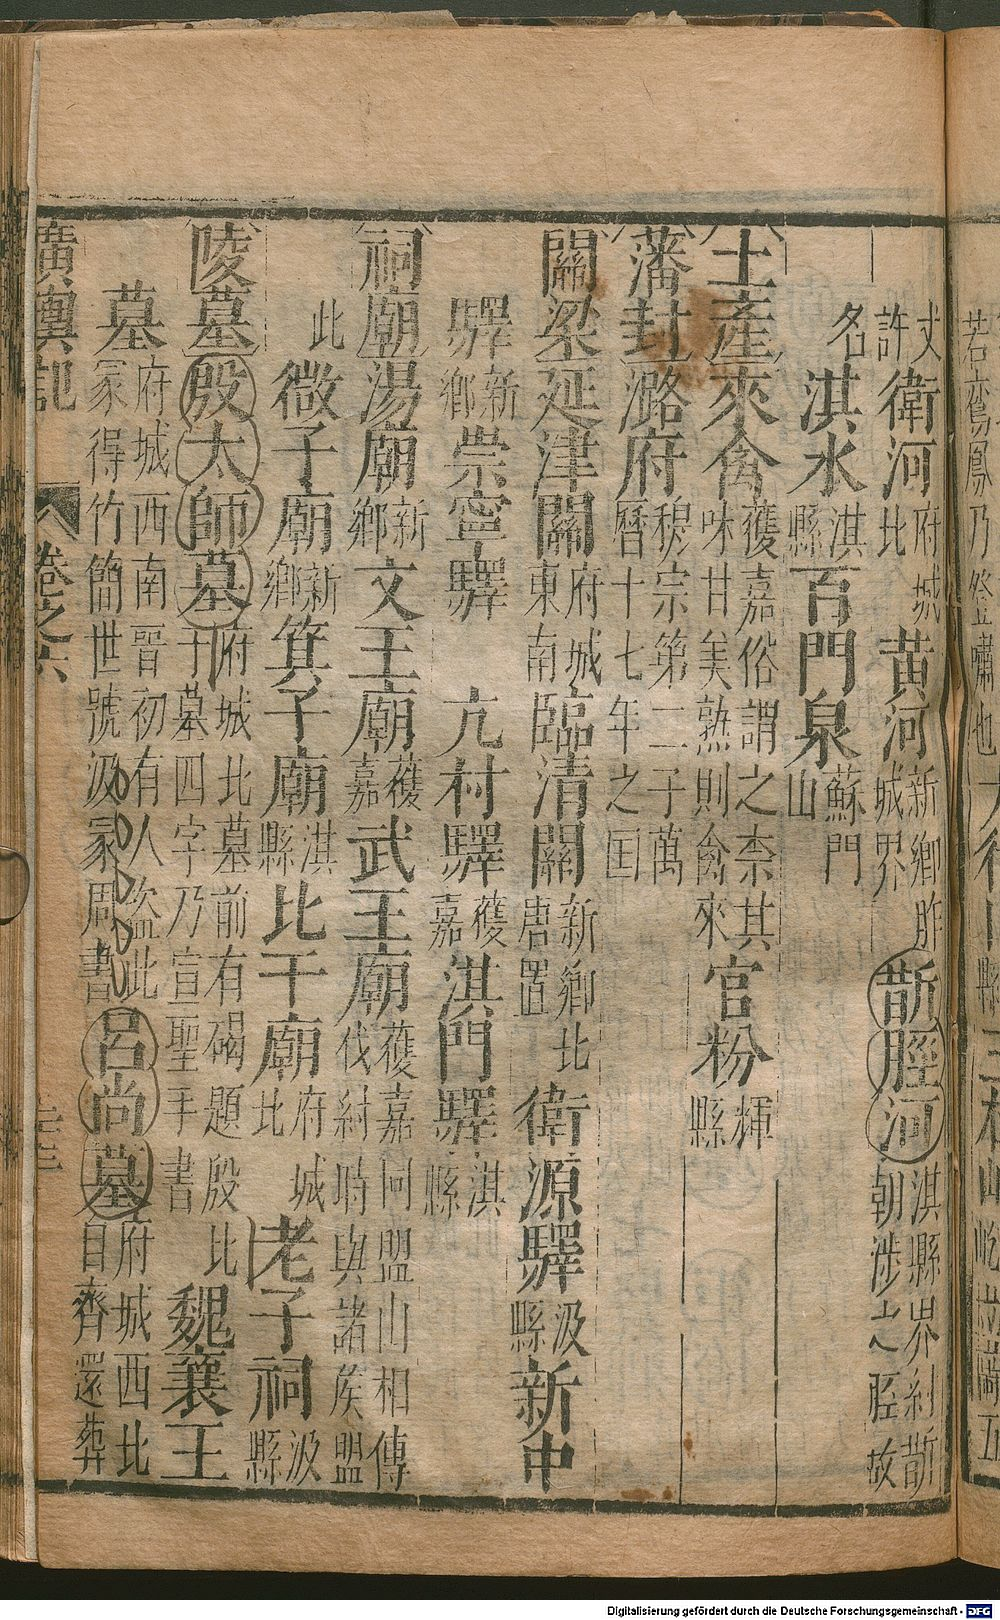 丈許衛河府城北黃河新鄉胙城界斮脛河淇縣界紂斮朝涉之脛故
名淇水淇縣百門泉蘇門山
土產來禽獲嘉俗謂之柰其味甘美熟則禽來官粉輝縣
藩封潞府穆宗第二子萬曆十七年之国
關梁延津關府城東南臨清關新鄉北唐置衛源驛汲縣新中
驛新鄉崇寧驛亢村驛獲嘉淇門驛淇縣
祠廟湯廟新鄉文王廟獲嘉武王廟獲嘉同盟山相傳伐紂時與諸侯盟
此微子廟新鄉箕子廟淇縣比干廟府城北老子祠汲縣
陵墓殷太師墓府城北墓前有碣題殷比干墓四字乃宣聖手書魏襄王
墓府城西南晉初有人盜此冢得竹簡世號汲冢周書呂尚墓府城西北自齊還葬
廣輿記 卷之六
Digitalisierung gefördert durch die Deutsche Forschungsgemeinschaft - DFG